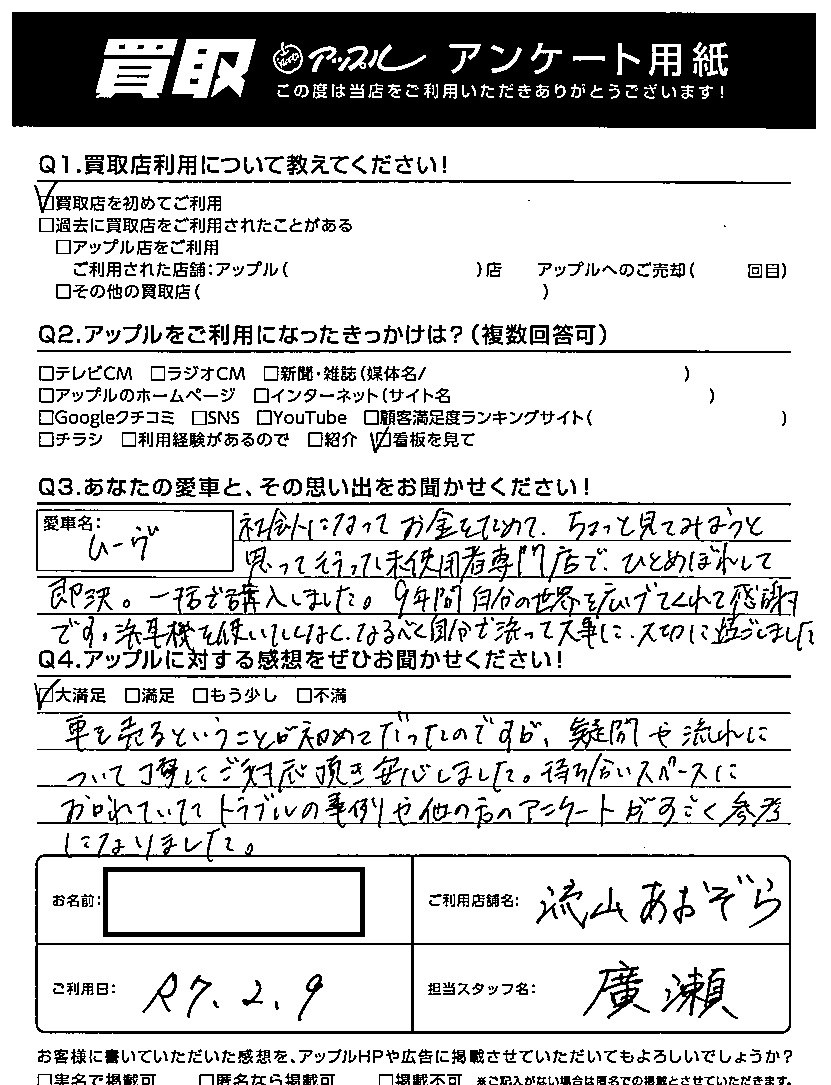 買取 アップル アンケート用紙
この度は当店をご利用いただきありがとうございます!
Q1.買取店利用について教えてください!
☑買取店を初めてご利用
□過去に買取店をご利用されたことがある
□アップル店をご利用
ご利用された店舗:アップル( )店 アップルへのご売却( 回目)
□その他の買取店( )
Q2.アップルをご利用になったきっかけは?(複数回答可)
□テレビCM □ラジオCM □新聞・雑誌(媒体名/ )
□アップルのホームページ □インターネット(サイト名 )
□Googleクチコミ □SNS □YouTube □顧客満足度ランキングサイト( )
□チラシ □利用経験があるので □紹介 ☑看板を見て
Q3.あなたの愛車と、その思い出をお聞かせください!
愛車名: ムーヴ
社会人になってお金をためて、ちょっと見てみようと
思って行った未使用者専門店で、ひとめぼれして
即決。一括で購入しました。9年間自分の世界を広げてくれて感謝
です。洗車機を使いたくなく、なるべく自分で洗って大事に、大切に過ごしました
Q4.アップルに対する感想をぜひお聞かせください!
☑大満足 □満足 □もう少し □不満
車を売るということが初めてだったのですが、疑問や流れに
ついて丁寧にご対応頂き安心しました。待ち合いスペースに
おかれていた トラブルの事例や他の方のアンケートがすごく参考
になりました。
お名前:
ご利用店舗名: 流山あおぞら
ご利用日: R7.2.9
担当スタッフ名: 廣瀬
お客様に書いていただいた感想を、アップルHPや広告に掲載させていただいてもよろしいでしょうか?
□実名で掲載可 □匿名なら掲載可 □掲載不可 ※ご記入がない場合は匿名での掲載とさせていただきます。